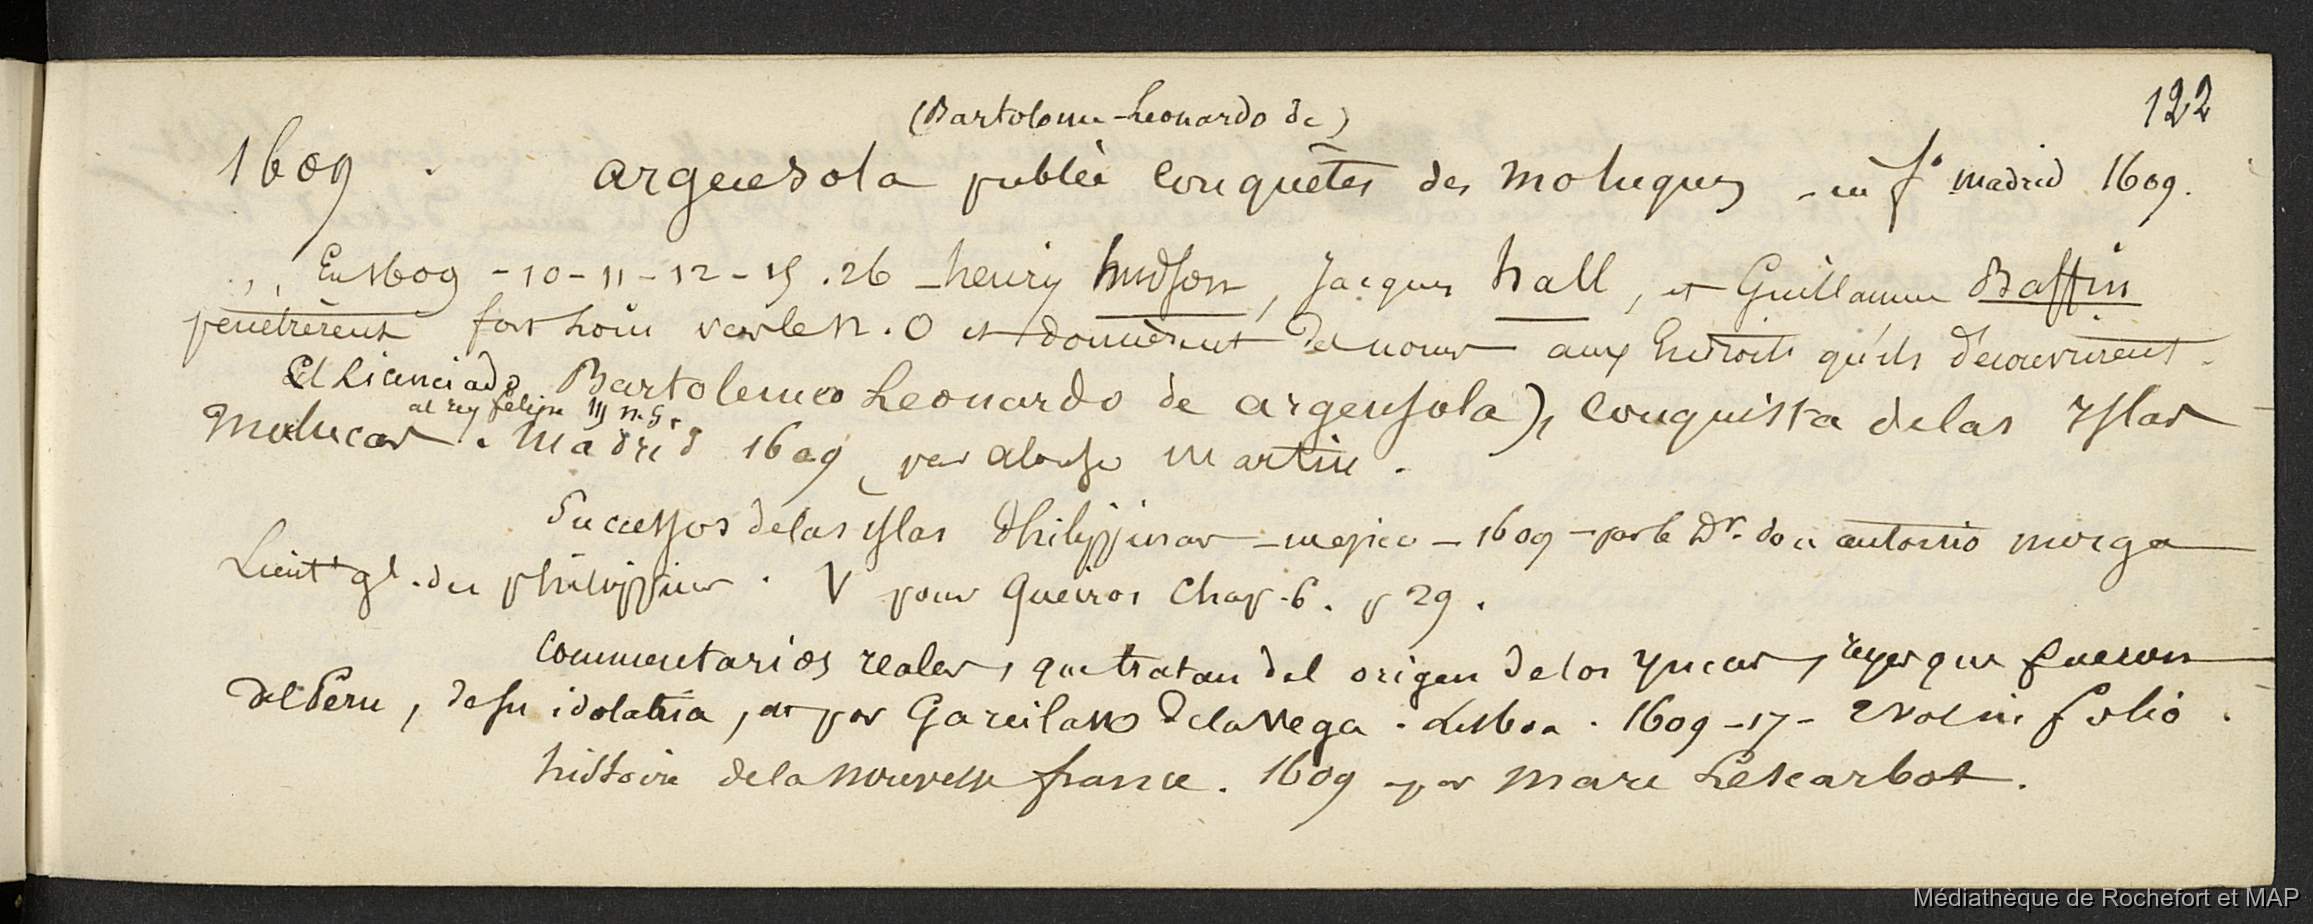 122
(Bartolome Leonardo de)
1609 . argensola publie conquêtes des moluques - in f° madrid 1609.
,, En 1609 - 10 - 11 - 12 - 15 . 26 - henry hudson, Jacques hall, et Guillaume Baffin
penétrèrent fort loin vers le N. O et donnèrent des noms aux Endroits qu'ils découvrirent.
El Licenciado Bartolemeo Leonardo de argensola), conquista de las Yslas
al rey felipe III n. S.r
Molucas . Madrid 1609, par alonso martin .
Sucessos de las yslas Philippinas - mejico - 1609 - par le Dr. don antonio morga
Lieutt gl. des philippines . V pour Queiros Chap. 6 . p 29 .
Commentarios reales, que tratan del origen de los Yncas, reyes que fueron
del Peru, de su idolatria, &c por Garcilasso de la Vega . Lisboa . 1609 - 17 - 2 vol in folio .
histoire de la nouvelle france . 1609 - par Marc Lescarbot .
Médiathèque de Rochefort et MAP